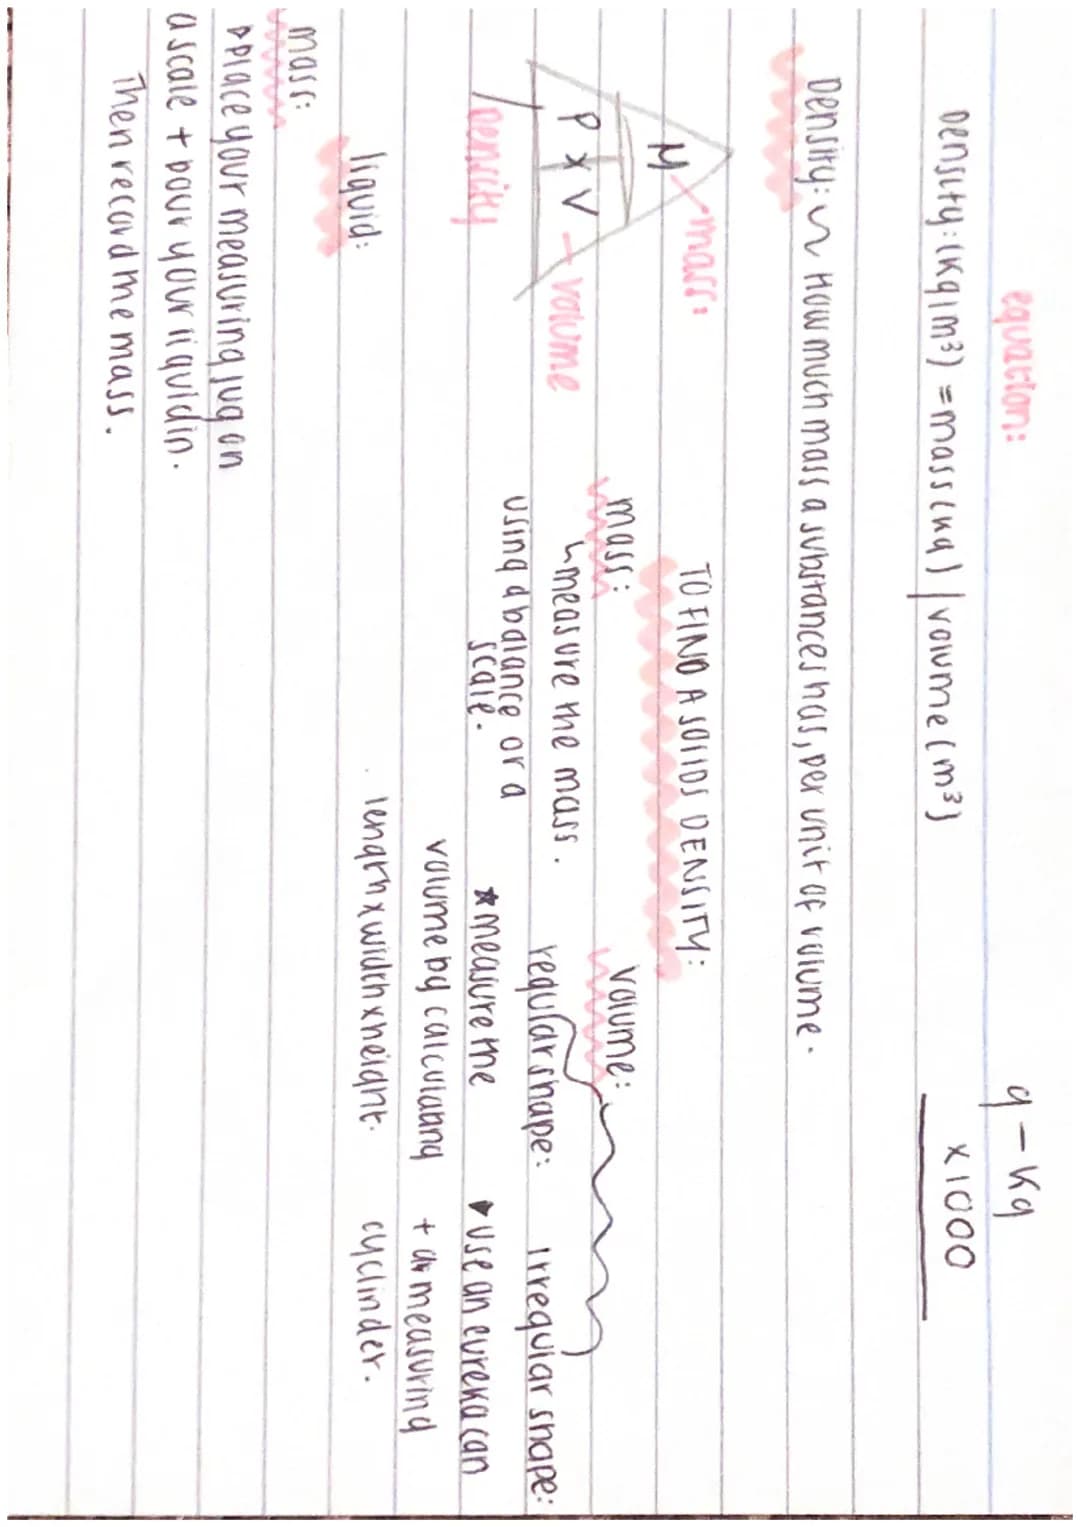 equation:
g - kg
Density: (kg/m³) = mass (kg) / volume (m³)
x 1000
Density: ~ How much mass a substances has, per unit of volume.
TO FIND A SOLIDS DENSITY:
M
mass:
P x V
volume
Density
mass:
↳ measure the mass.
using a balance or a
scale.
volume:
regular shape:
* measure the
volume by calculating
length x width x height.
irregular shape:
▾ use an eureka can
+ a measuring
cyclinder.
liquid:
mass:
▹ place your measuring jug on
a scale + pour your liquid in.
Then record the mass.